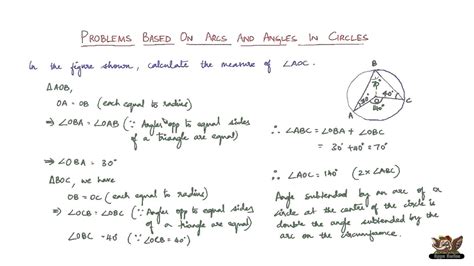 PROBLEMS BASED ON ARCS AND ANGLES IN CIRCLES
In the figure shown, calculate the measure of ∠AOC.
ΔAOB,
OA = OB (each equal to radius)
⇒ ∠OBA = ∠OAB (∵ Angles opp to equal sides
of a triangle are equal)
⇒ ∠OBA = 30°
ΔBOC, we have
OB = OC (each equal to radius)
⇒ ∠OCB = ∠OBC (∵ Angles opp to equal sides
of a triangle are equal)
∠OBC = 40° (∵ ∠OCB = 40°)
B
70°
30°
40°
O
140°
A
C
∴ ∠ABC = ∠OBA + ∠OBC
= 30° + 40° = 70°
∴ ∠AOC = 140° (2×∠ABC)
Angle subtended by an arc of a
circle at the centre of the circle is
double the angle subtended by the
arc on the circumference.